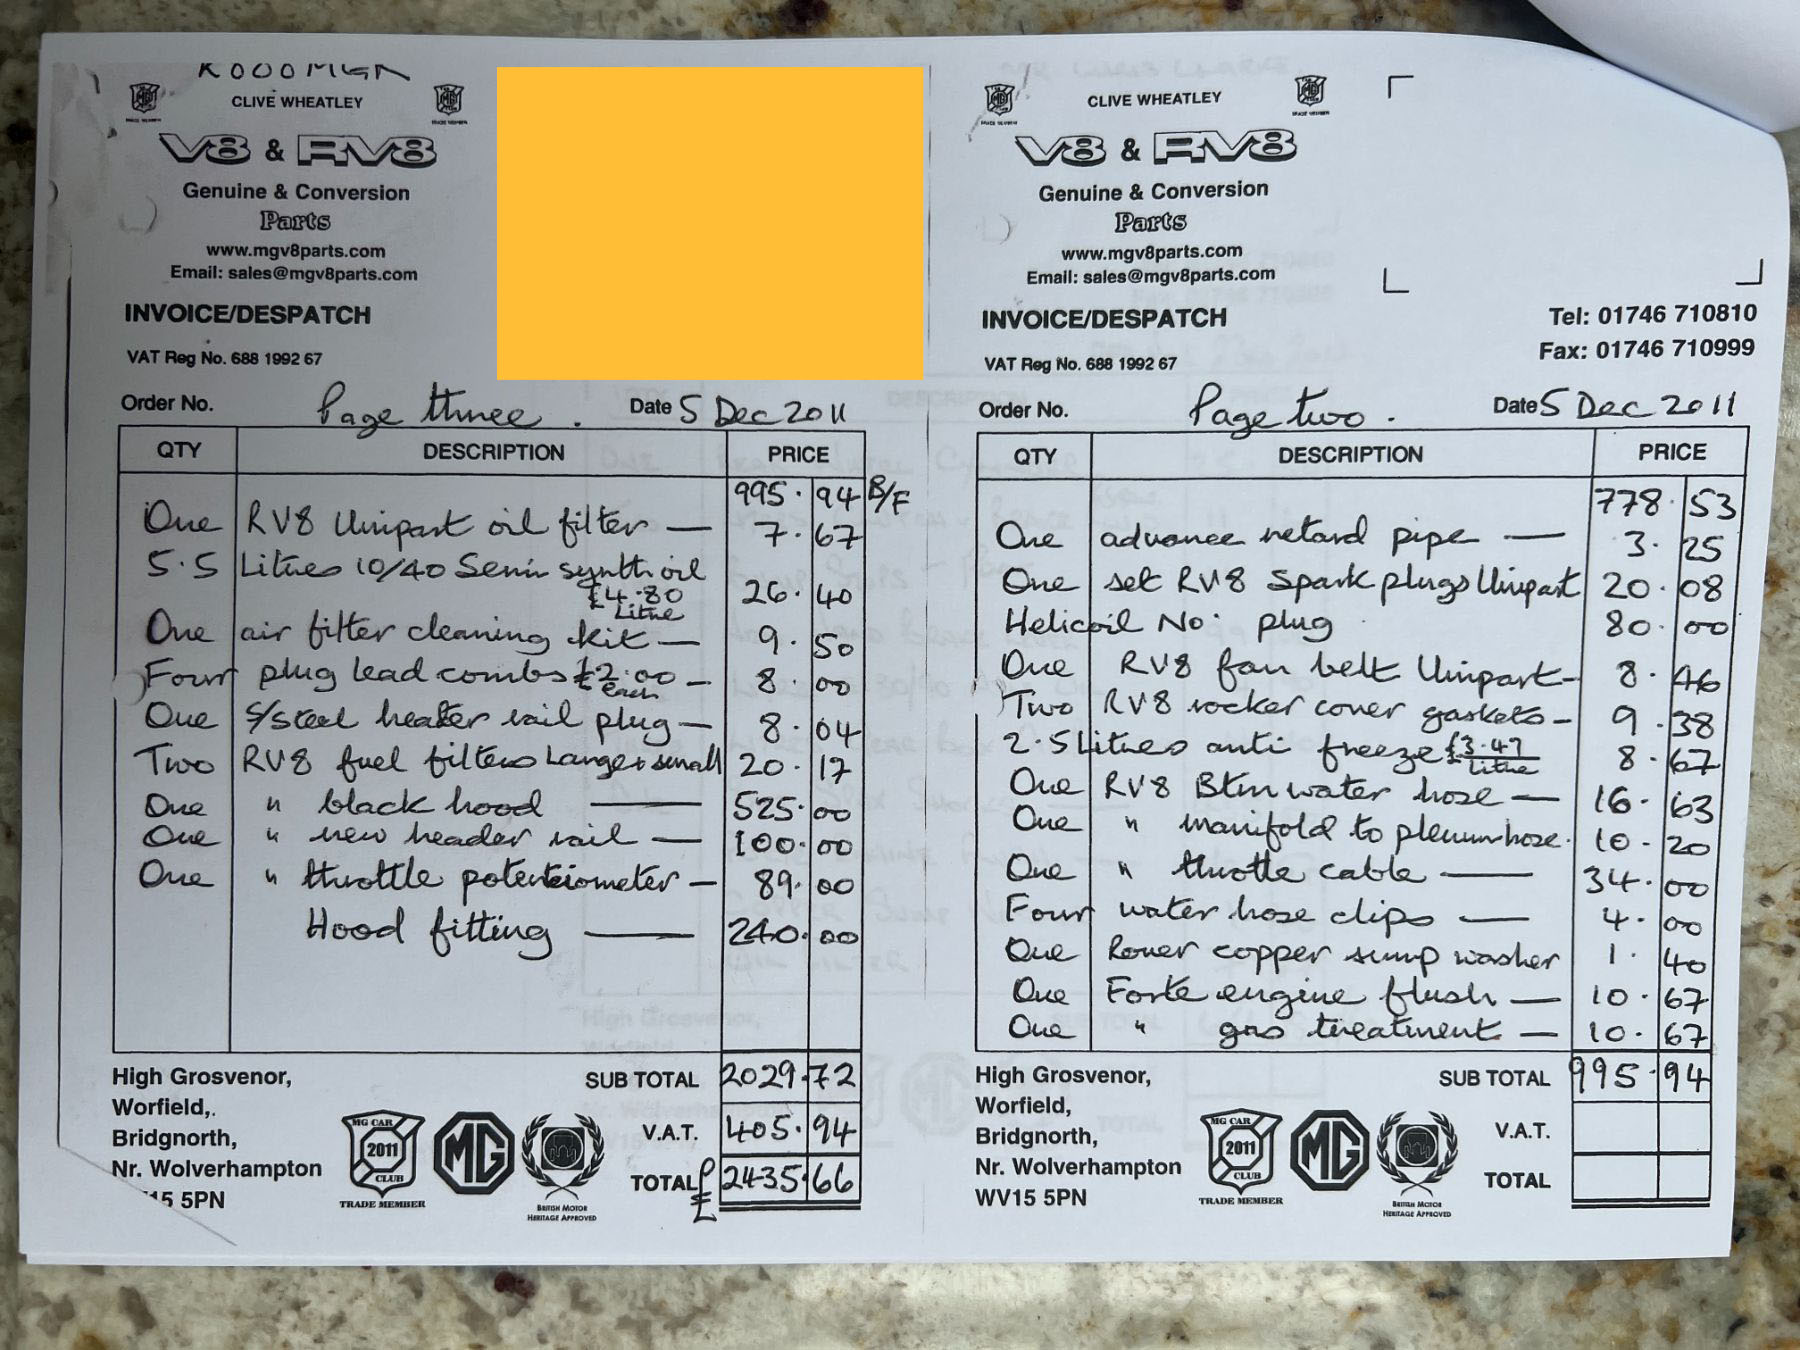 K000MGR
CLIVE WHEATLEY
V8 & RV8
Genuine & Conversion
Parts
www.mgv8parts.com
Email: sales@mgv8parts.com
INVOICE/DESPATCH
VAT Reg No. 688 1992 67
Order No. Page three. Date 5 Dec 2011
QTY DESCRIPTION PRICE
995.94 B/F
One RV8 Unipart oil filter — 7.67
5.5 Litres 10/40 Semi synth oil
£4.80 Litre 26.40
One air filter cleaning kit — 9.50
Four plug lead combs £2.00 each — 8.00
One S/Steel heater rail plug — 8.04
Two RV8 fuel filters Large + small 20.17
One " black hood — 525.00
One " new header rail — 100.00
One " throttle potentiometer — 89.00
Hood fitting — 240.00
High Grosvenor,
Worfield,.
Bridgnorth,
Nr. Wolverhampton
15 5PN
MG CAR
2011
CLUB
TRADE MEMBER
MG
BRITISH MOTOR
HERITAGE APPROVED
SUB TOTAL 2029.72
V.A.T. 405.94
TOTAL £ 2435.66
CLIVE WHEATLEY
V8 & RV8
Genuine & Conversion
Parts
www.mgv8parts.com
Email: sales@mgv8parts.com
INVOICE/DESPATCH
Tel: 01746 710810
Fax: 01746 710999
VAT Reg No. 688 1992 67
Order No. Page two. Date 5 Dec 2011
QTY DESCRIPTION PRICE
778.53
One advance retard pipe — 3.25
One set RV8 Spark plugs Unipart 20.08
Helicoil No: plug 80.00
One RV8 fan belt Unipart — 8.46
Two RV8 rocker cover gaskets — 9.38
2.5 Litres anti freeze £3.47 Litre 8.67
One RV8 Btm water hose — 16.63
One " manifold to plenum hose. 10.20
One " throttle cable — 34.00
Four water hose clips — 4.00
One Rover copper sump washer 1.40
One Forte engine flush — 10.67
One " gas treatment — 10.67
High Grosvenor,
Worfield,
Bridgnorth,
Nr. Wolverhampton
WV15 5PN
MG CAR
2011
CLUB
TRADE MEMBER
MG
BRITISH MOTOR
HERITAGE APPROVED
SUB TOTAL 995.94
V.A.T.
TOTAL